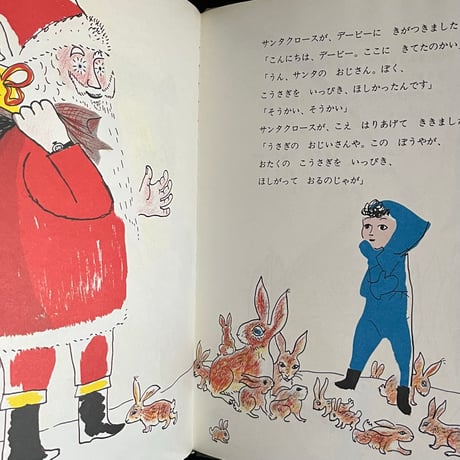 サンタクロースが、デービーに きがつきました
「こんにちは、デービー。ここに きてたのかい
「うん、サンタの おじさん。ぼく、
こうさぎを いっぴき、ほしかったんです」
「そうかい、そうかい」
サンタクロースが、こえ はりあげて ききまし
「うさぎの おじいさんや。この ぼうやが、
おたくの こうさぎを いっぴき、
ほしがって おるのじゃが」